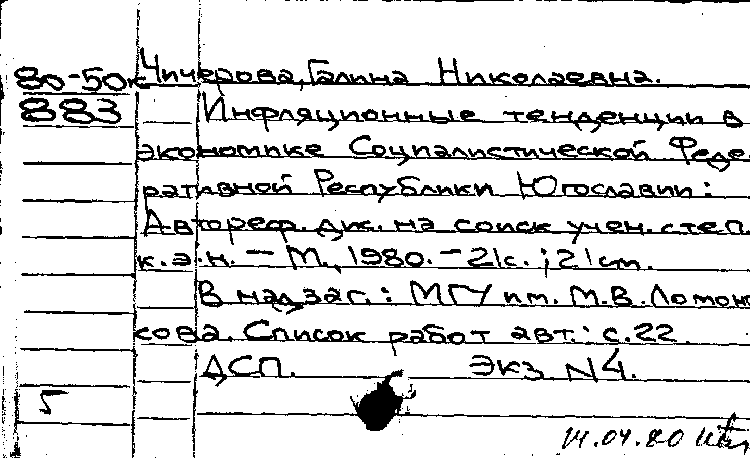 80-50к Чичерова, Галина Николаевна.
883 Инфляционные тенденции в
экономике Социалистической Феде
ративной Республики Югославии:
Автореф. дис. на соиск учен. степ.
к.э.н. – М., 1980. – 21с.; 21см.
В надзаг.: МГУ им. М.В. Ломоно
сова. Список работ авт.: с.22.
ДСП. Экз N4.
5
14.04.80